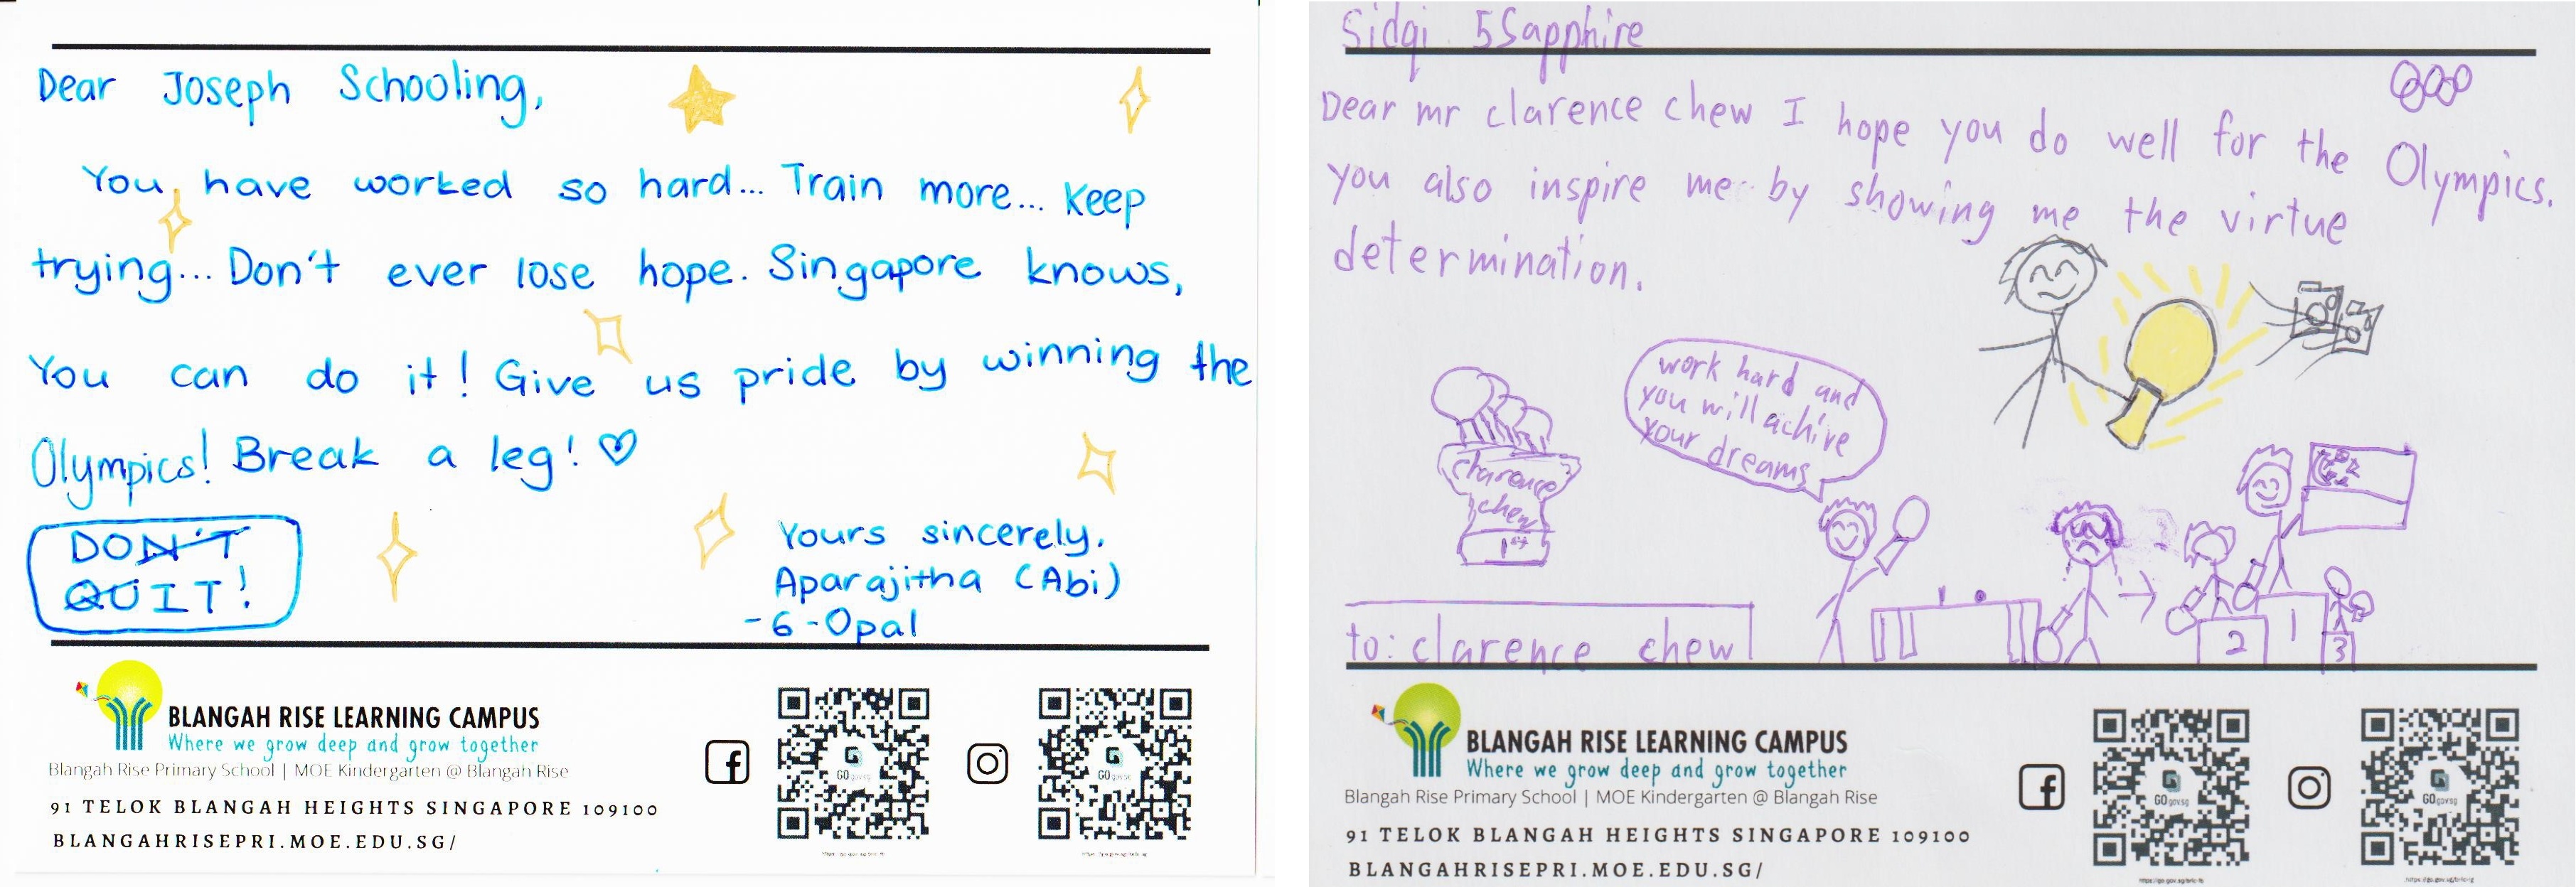 Dear Joseph Schooling,
You have worked so hard... Train more... Keep
trying... Don't ever lose hope. Singapore knows,
You can do it! Give us pride by winning the
Olympics! Break a leg! ♡
DON'T
QUIT!
Yours sincerely,
Aparajitha (Abi)
-6-Opal
BLANGAH RISE LEARNING CAMPUS
Where we grow deep and grow together
Blangah Rise Primary School | MOE Kindergarten @ Blangah Rise
91 TELOK BLANGAH HEIGHTS SINGAPORE 109100
BLANGAHRISEPRI.MOE.EDU.SG/
GOgovsg
GOgovsg
Sidqi 5Sapphire
Dear mr clarence chew I hope you do well for the Olympics.
you also inspire me by showing me the virtue
determination.
work hard and
you will achive
your dreams
clarence
chew
1st
2
1
3
to: clarence chew
BLANGAH RISE LEARNING CAMPUS
Where we grow deep and grow together
Blangah Rise Primary School | MOE Kindergarten @ Blangah Rise
91 TELOK BLANGAH HEIGHTS SINGAPORE 109100
BLANGAHRISEPRI.MOE.EDU.SG/
GOgovsg
GOgovsg